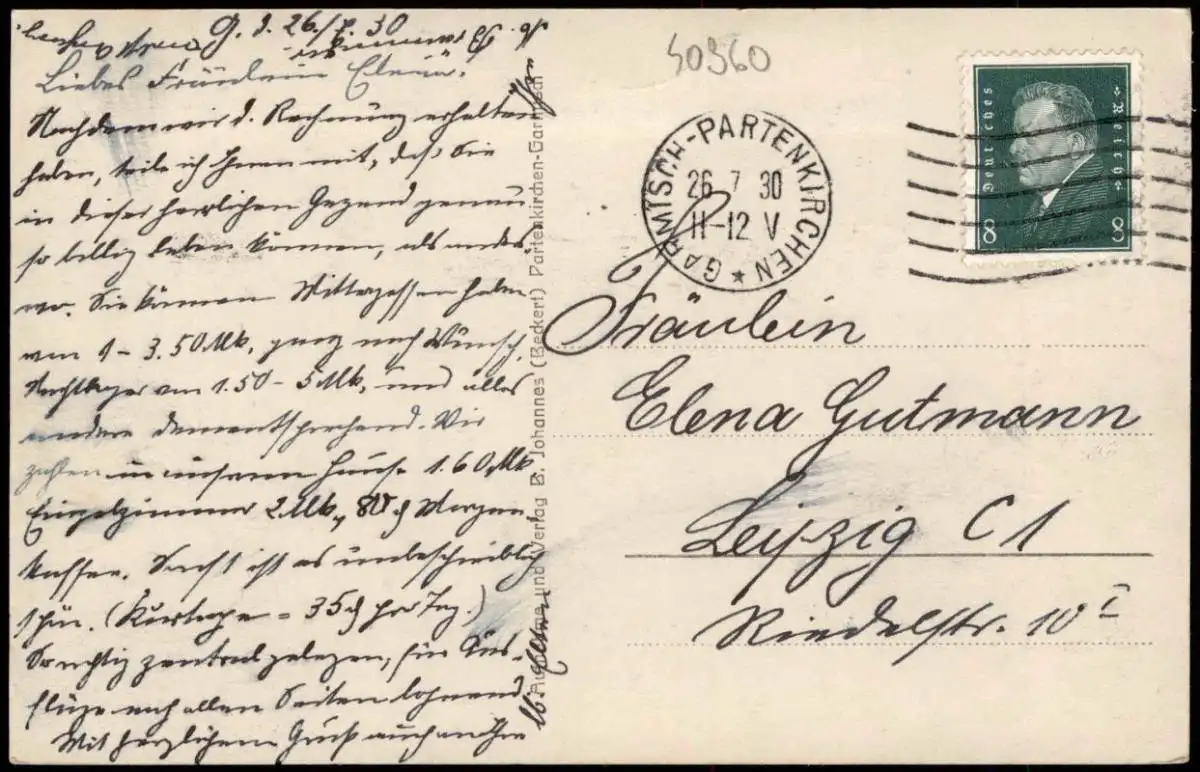 G. d. 26./7. 30
Liebes Fräulein Elena!
Nachdem wir d. Rechnung erhalten
haben, teile ich Ihnen mit, daß Sie
in dieser herrlichen Gegend genau
so billig leben können, als anders-
wo. Sie können Mittagessen haben
von 1 - 3.50 Mk, ganz nach Wunsch,
Nachtlager von 1.50 - 5 Mk, und alles
andere dementsprechend. Wir
zahlen in unserem Hause 1.60 Mk,
Einzelzimmer 2. Mk, 80 d Morgen-
kaffee. Sonst ist es unbeschreiblich
schön. (Kurtaxe = 35 d pro Tag.)
So richtig zentral gelegen, für Aus-
flüge nach allen Seiten lohnend.
Mit herzlichem Gruß auch an Ihre
Verlag B. Johannes (Beckert) Partenkirchen-Garmisch
50960
GARMISCH-PARTENKIRCHEN
26 7 30
11-12 V
Deutsches Reich
8 8
Fräulein
Elena Gutmann
Leipzig C 1
Riedelstr. 10 I